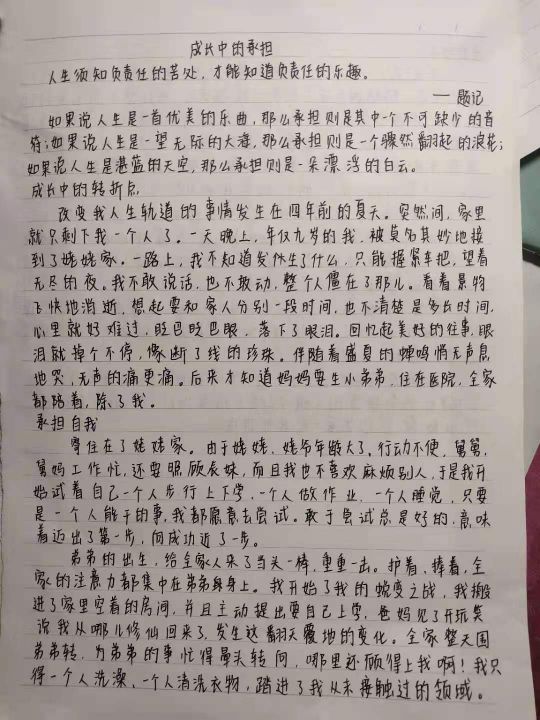 成长中的承担
人生须知负责任的苦处，才能知道负责任的乐趣。
——题记
如果说人生是一首优美的乐曲，那么承担则是其中一个不可缺少的音
符；如果说人生是一望无际的大海，那么承担则是一个骤然翻起的浪花；
如果说人生是湛蓝的天空，那么承担则是一朵漂浮的白云。
成长中的转折点
改变我人生轨道的事情发生在四年前的夏天。突然间，家里
就只剩下我一个人了。一天晚上，年仅九岁的我，被莫名其妙地接
到了姥姥家。一路上，我不知道发生了什么，只能握紧车把，望着
无尽的夜。我不敢说话，也不敢动，整个人僵在了那儿。看着景物
飞快地消逝，想起要和家人分别一段时间，也不清楚是多长时间，
心里就好难过，眨巴眨巴眼，落下了眼泪。回忆起美好的往事，眼
泪就掉个不停，像断了线的珍珠。伴随着盛夏的蝉鸣悄无声息
地哭，无声的痛更痛。后来才知道妈妈要生小弟弟，住在医院，全家
都陪着，除了我。
承担自我
寄住在了姥姥家。由于姥姥、姥爷年龄大了，行动不便，舅舅、
舅妈工作忙，还要照顾辰妹，而且我也不喜欢麻烦别人，于是我开
始试着自己一个人步行上下学，一个人做作业，一个人睡觉，只要
是一个人能干的事，我都愿意去尝试。敢于尝试总是好的，意味
着迈出了第一步，向成功近了一步。
弟弟的出生，给全家人来了当头一棒，重重一击。护着，捧着，全
家的注意力都集中在弟弟身上。我开始了我的蜕变之战，我搬
进了家里空着的房间，并且主动提出要自己上学，爸妈见了开玩笑
说我从哪儿修仙回来了，发生这翻天覆地的变化。全家整天围
弟弟转，为弟弟的事忙得晕头转向，哪里还顾得上我啊！我只
得一个人洗澡、一个人清洗衣物，踏进了我从未接触过的领域。